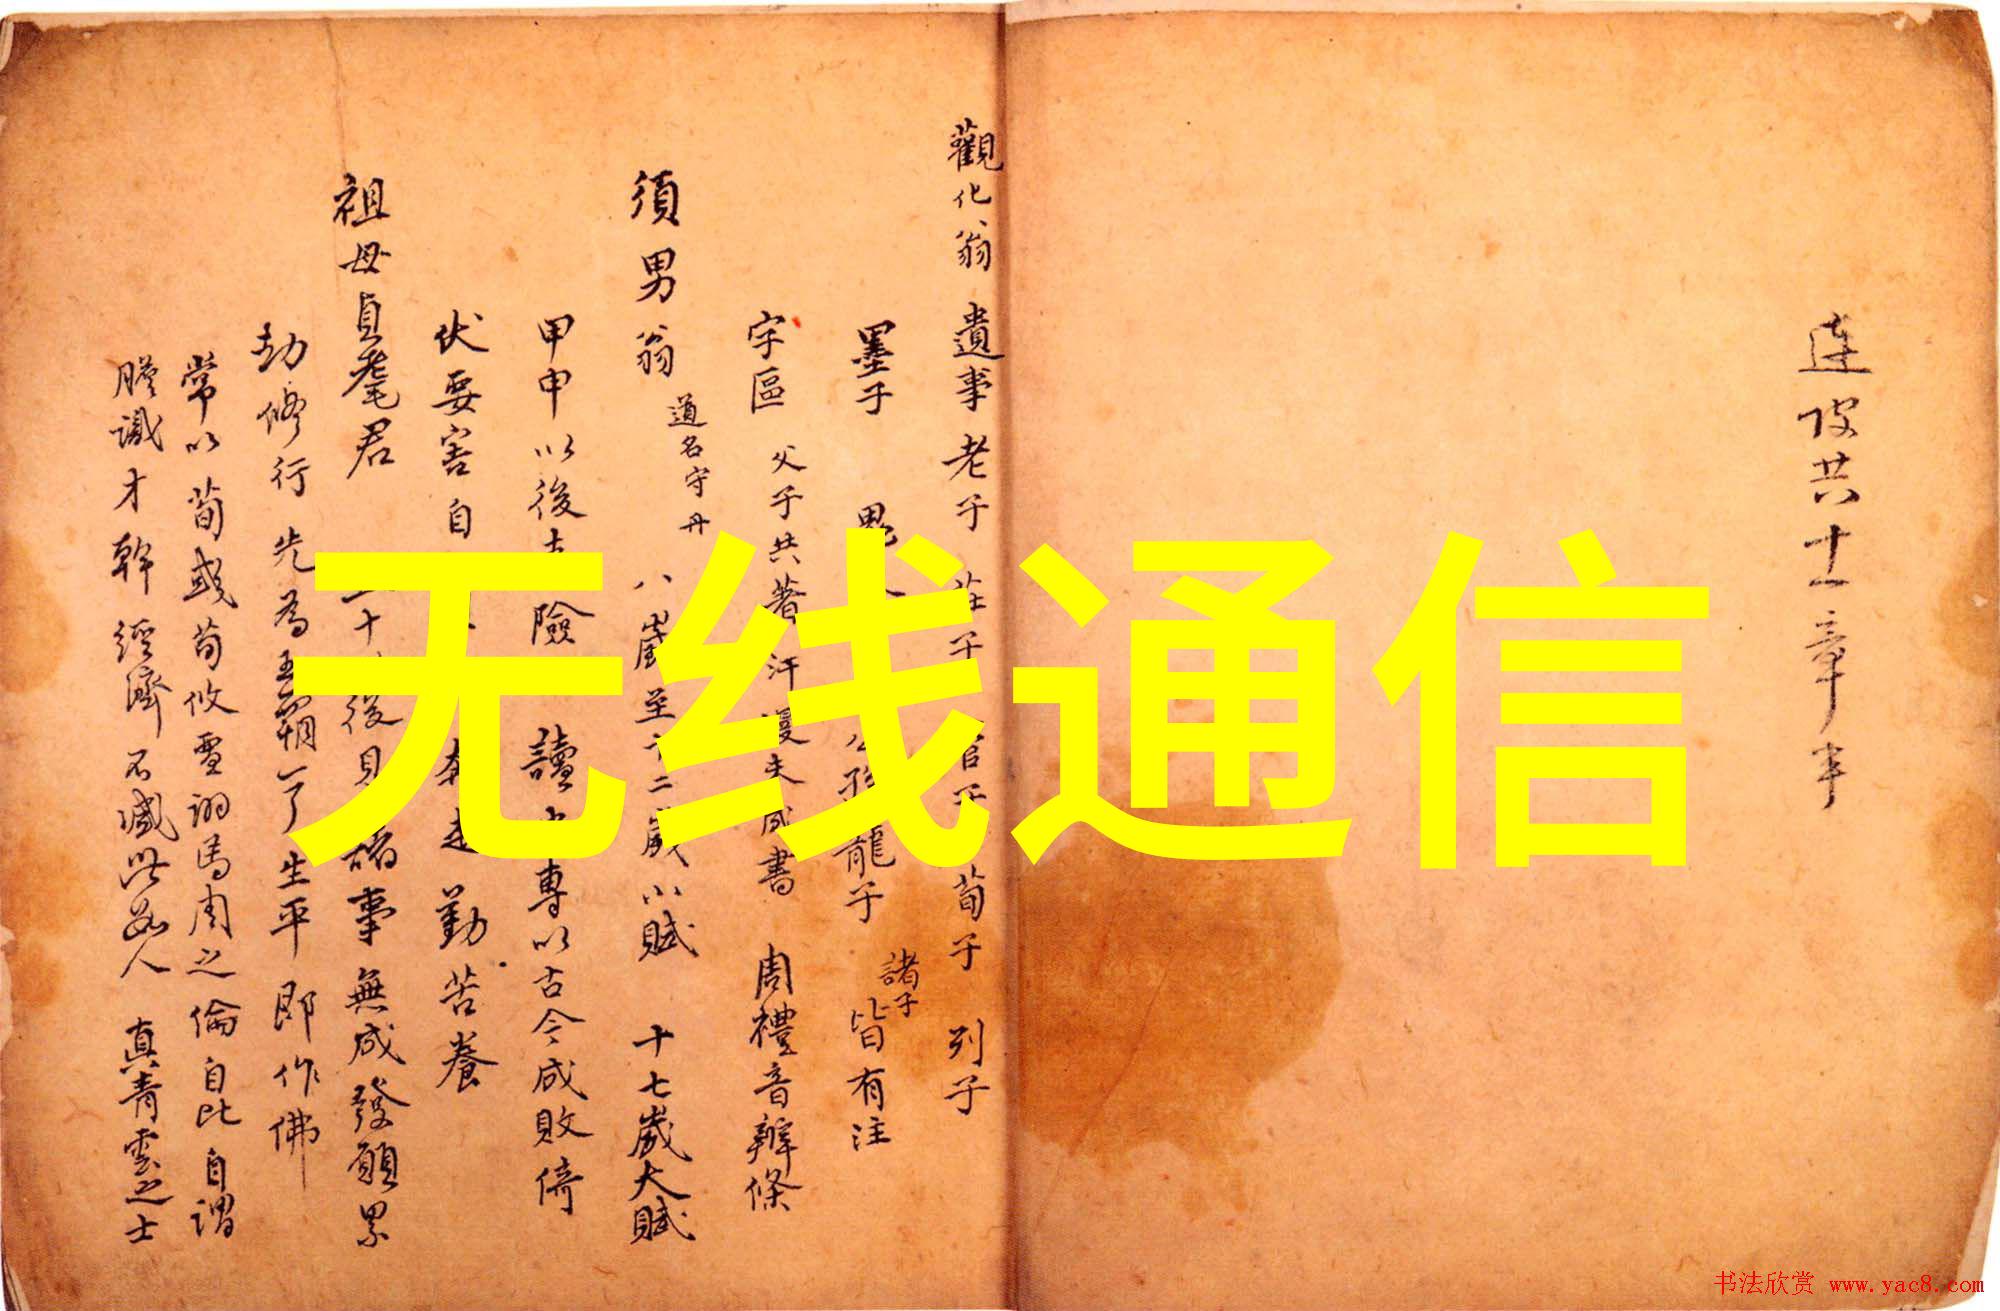 連皮共十一章半
觀化翁 遺事 老子 莊子 管子 荀子 列子
墨子 龍子 諸子 皆有注
字區 父子共著 汗漫失成書 周禮音辨條
須男翁 道名守丹 八歲至十二歲小賦 十七歲大賦
甲申以後 險 讀 專以古今成敗倚
伏要害自 奔走勤苦養
祖母貞耄君 十 後見諸事無成發願累
劫修行先為五霸了生平即作佛
常以荀彧荀攸 馬周之倫自比自謂
膽識才幹經濟不減此 人 真青雲之士
无线通信
书法欣赏 www.yac8.com